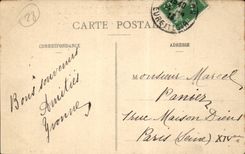 (22)
CARTE POSTALE
CORRESPONDANCE
ADRESSE
Bons souvenirs
Amitiés
Yvonne
Monsieur Marcel
Panier
1 rue Maison Dieu
Paris (Seine) XIVe